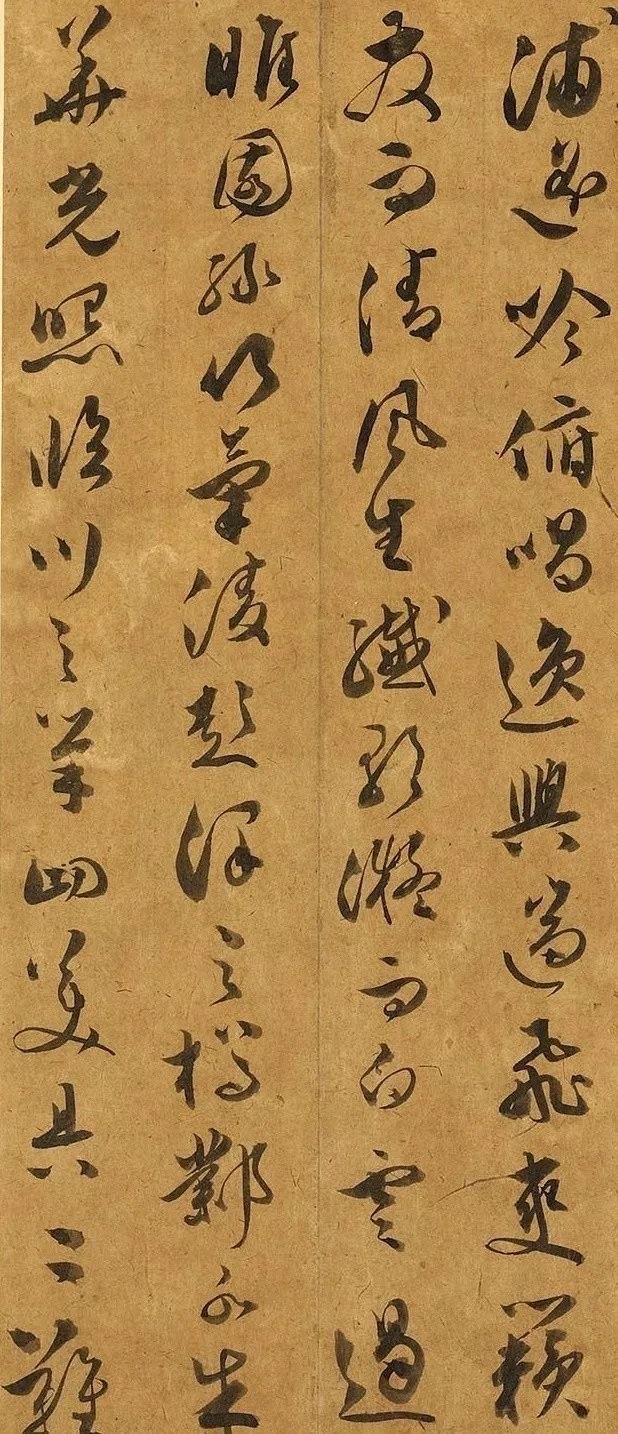 浦遥吟俯唱逸興遄飛爽籟
發而清風生纖歌凝而白雲遏
睢園綠竹氣淩彭澤之樽鄴水朱
華光照臨川之筆四美具二難